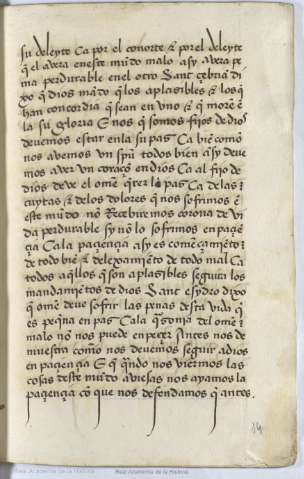 su deleyte Ca por el conorte & por el deleyte
q̃ el avera en este mũdo malo asy avera pe
na perdurable en el otro Sant çebriã di
xo q̃ dios mãdo q̃ los aplasibles & los q̃
han concordia q̃ sean en uno & q̃ more ẽ
la su gloria E nos q̃ somos fijos de dios
devemos estar en la su pas Ca biẽ como
nos avemos un spũ todos bien asy deve
mos aver un coraçõ en dios Ca al fijo de
dios deve el ome q̃rer lo pas Ca de las
cuytas & de los dolores q̃ nos sofrimos ẽ
este mũdo nõ Recebiremos corona de vi
da perdurable sy nõ lo sofrimos en paçẽ
çia Ca la paçẽçia asy es comẽçamiẽto
de todo biẽ & delexamiẽto de todo mal Ca
todos aq̃llos q̃ son aplasibles seguirã los
mandamiẽtos de dios Sant esydro dixo
q̃ ome deve sofrir las penas desta vida q̃
es peq̃na en pas Ca la
malo nõ nos puede enpeçer Antes nos de
muestra como nos devemos seguir a dios
en paçẽçia E q̃ q̃ndo nos viermos las
cosas deste mũdo aviesas nos ayamos la
paçẽçia cõ que nos defendamos q̃ antes
Real Academia de la Historia
Real Academia de la Historia